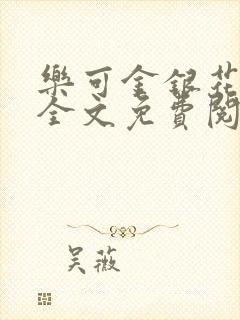 樂可金銀花
全文免費閱
吴薇